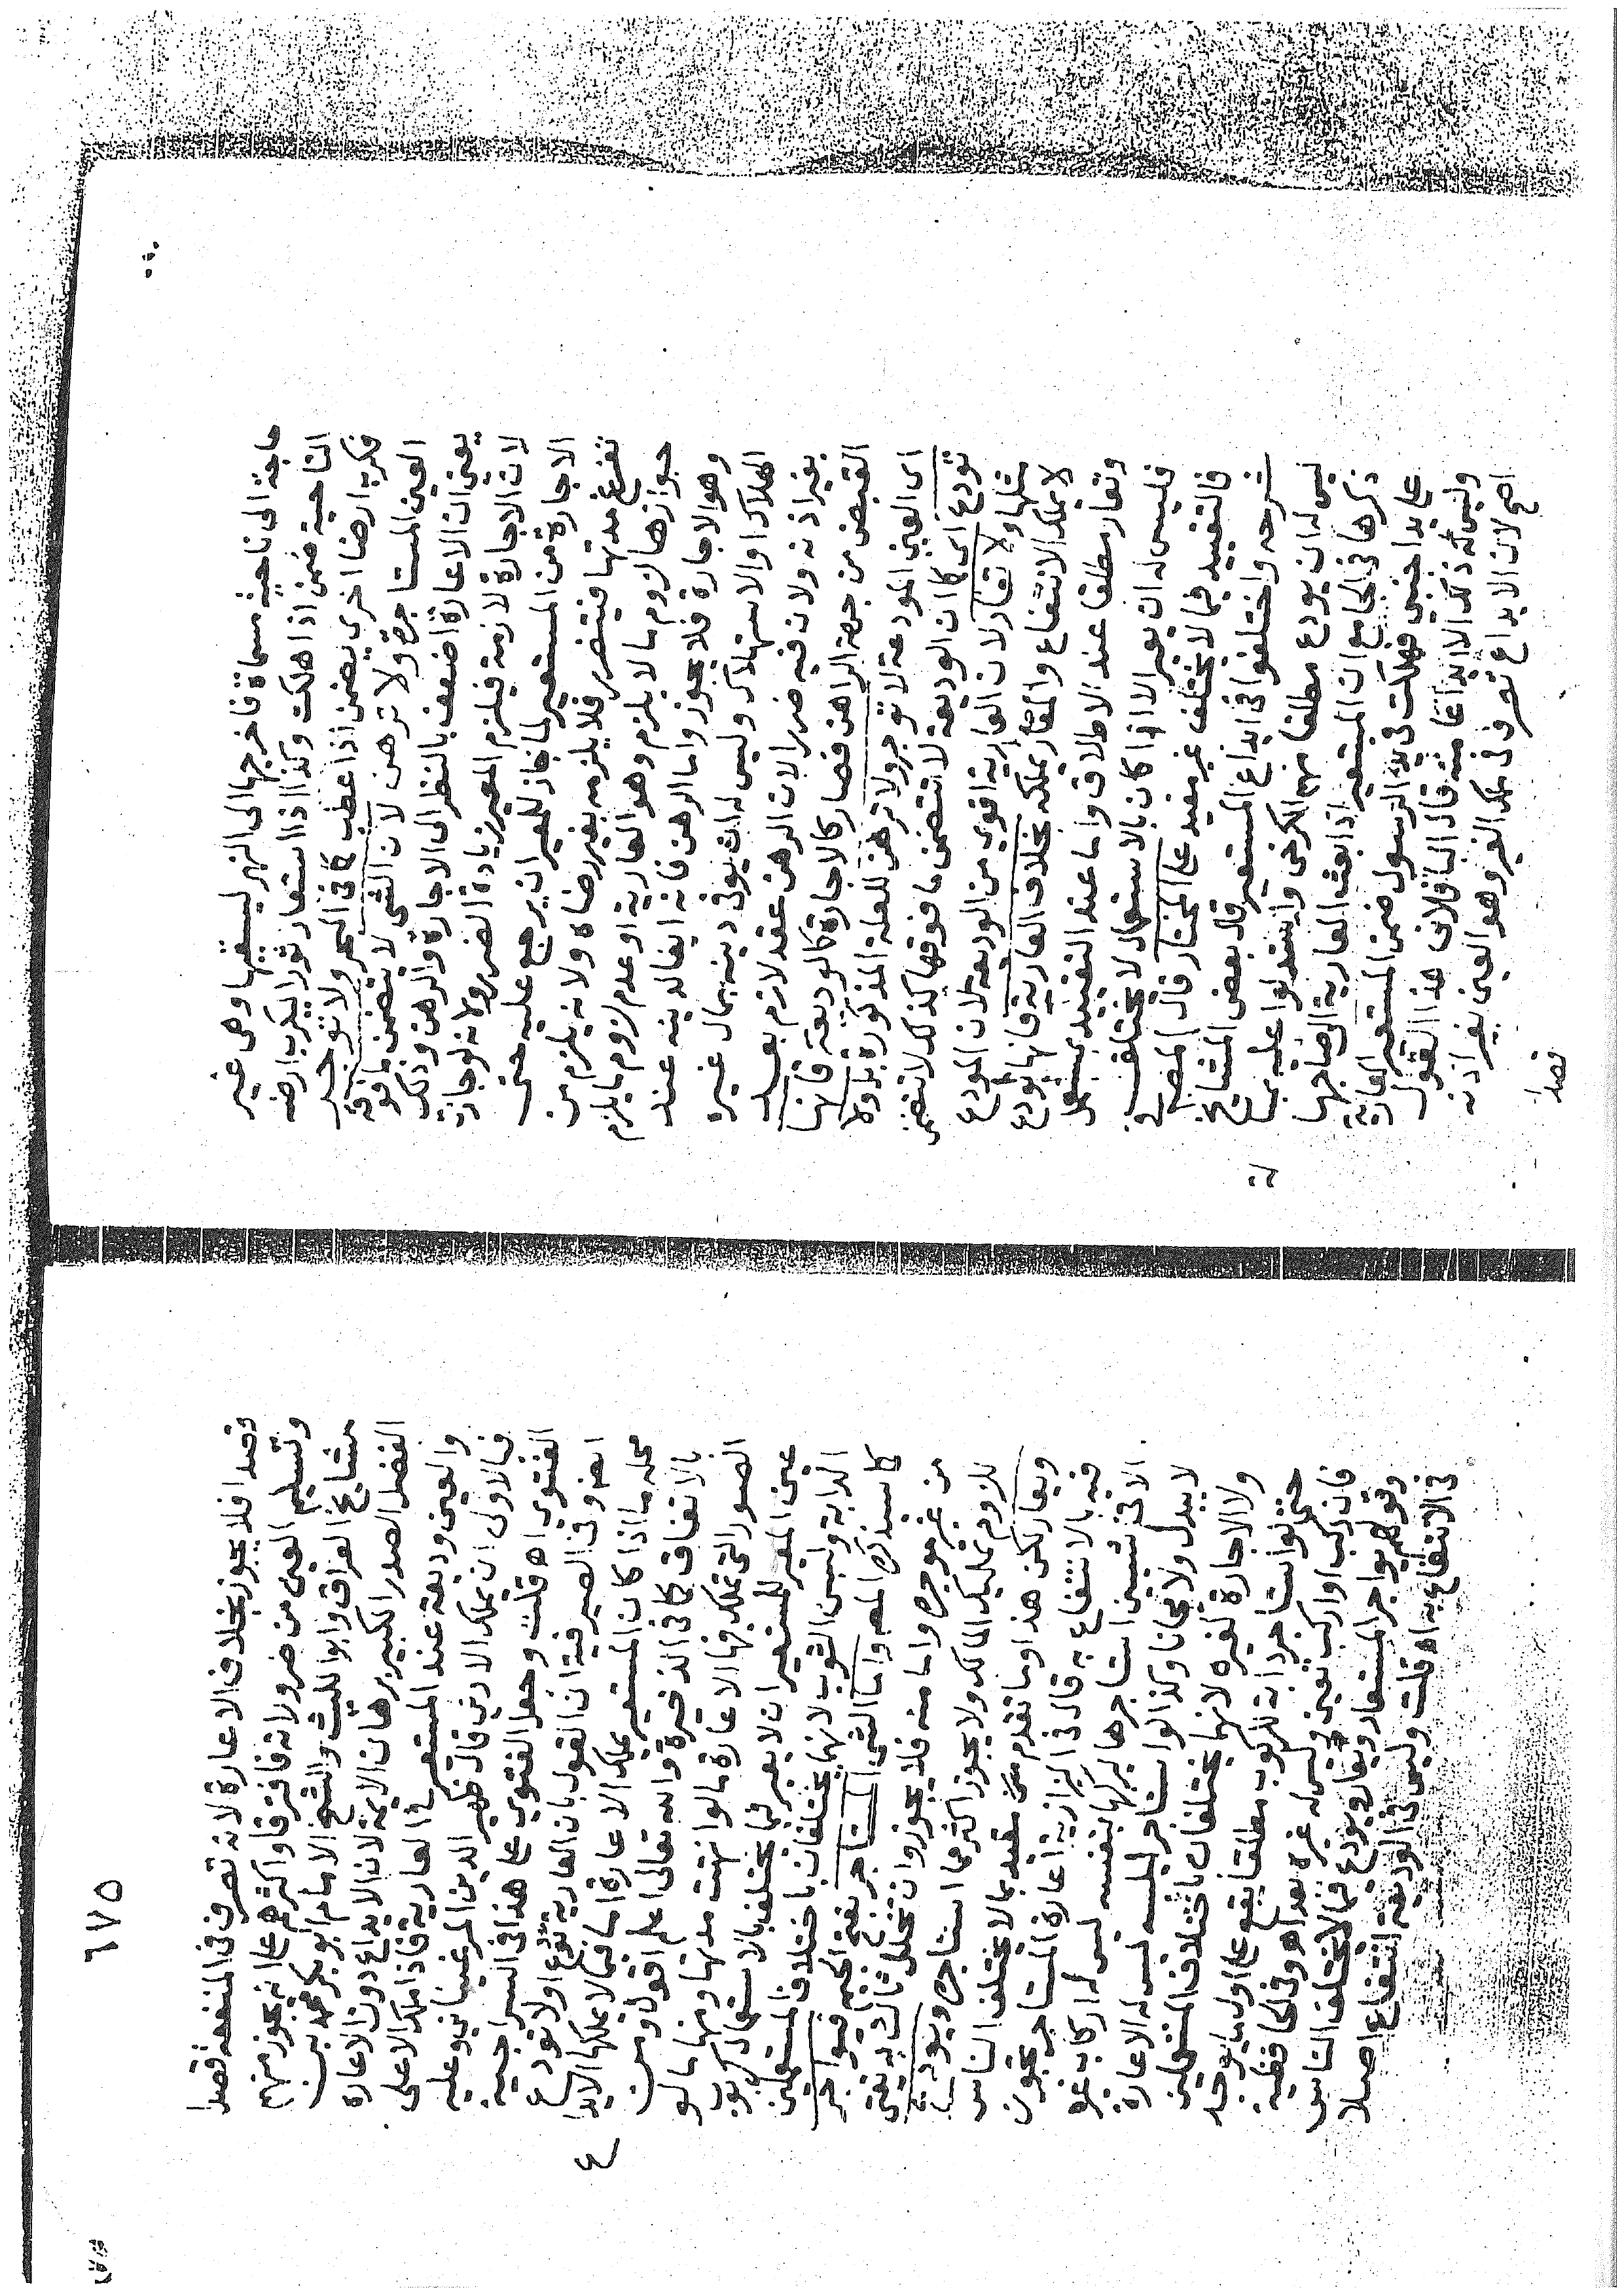 حاجة الى ناحية سماة فاخرجها الى النهر ليسقيها وهى غير
الناحية ضمن اذا هلكت وكذا اذا استعار ثورا ليكرب ارضه
فكرب ارضا اخرى يضمن اذا عطب كما فى البحر ولا توجر
العين المستاجرة ولا ترهن لان الشى لا يتضمن ما فوقه
يعنى ان الاعارة اضعف بالنظر الى الاجارة والرهن وذلك
لان الاجارة لازمة فيلزم المعير زيادة الضرر ولانه لو جاز
الاجارة من المستعير لما جاز للمعير ان يرجع عليه حتى
تفرغ مدتها فيتضرر فلا يلزمه بغير رضاه ولانه يلزم من
جوازها لزوم ما لا يلزم وهو العارية او عدم لزوم ما يلزم
وهو الاجارة فلا يجوز واما الرهن فانه ايفا لدينه عند
الهلاك او الاستهلاك وليس له ان يوفى دينه بمال غيره
بغير اذنه ولان فيه ضررا لان الرهن عقد لازم بعد
القبض من جهة الراهن فصار كالاجارة كالوديعة فانها
اى العين المودعة لا توجر ولا ترهن للعلة المذكورة بل ولا
تودع اى كما ان الوديعة لا تتضمن ما فوقها كذلك لا تتضمن
مثلها ولا تعار لان العارية اقوى من الوديعة لان المودع
لا يملك الانتفاع والمعار يملكه بخلاف العارية فانها تودع
وتعار مطلقا عند الاطلاق واما عند التقييد بمستعمل
فليس له ان يعير الا اذا كان بالاستعمال لا يختلف
فالتقييد فيما لا يختلف غير مفيد على المختار قال المصـ فى
شرحه واختلفوا فى ايداع المستعير قال بعض المشايخ
ليس له ان يودع مطلقا منهم الكرخى واستدلوا عليه بما
ذكرها فى الجامع ان المستعير اذا بعث العارية الى صاحبها
على يد اجنبى فهلكت فى يد الرسول ضمن المستعير العارية
وليس له ذلك الا ايداعا منه قال الباقلانى هذا القول
اصح لان الايداع تصرف فى ملك الغير وهو العين بغير اذنه
قصدا
٦٧٥
قصدا فلا يجوز بخلاف الاعارة لانه تصرف فى المنفعة قصدا
وتسليم العين من ضرورلاته فافترقا واكثرهم على انه يجوز منهم
مشايخ العراق وابو الليث والشيخ الامام ابو بكر محمد بن
الفضل الصدر الكبير برهان الايمة لان الايداع دون الاعارة
والعين وديعة عند المستعير فى العارية فاذا ملك الاعلى
فالاولى ان يملك الادنى قال ظهير الدين المرغينانى وعليه
الفتوى اهـ قلت وجعل الفتوى على هذا فى السراجية
ايضا وفى الصيرفية ان القول بان العارية تودع اولا تودع
محله ما اذا كان المستعير يملك الاعارة اما فيما لا يملكها لا يودع
بالاتفاق كما فى الذخيرة والله تعالى اعلم اقول ومن
الصور التى تملك فيها الاعارة ما لو انتهت مدتها ومنها ما لو
عين المعير للمستعير ان لا يعير فيما يختلف بالاستعمال كركوب
الدابة ولبس الثوب لانهما يختلفان باختلاف المستعملين
كما سنذكره المصـ واما الشى المستاجر بفتح الجيم فيواجر
من غير موجره واما منه فلا يجوز وان تخلل ثالث به يفتى
للزوم تمليك المالك ولا يجوز اكثر مما استاجره ويودع
ويعار لكن هذا وما تقدم مقيد بما لا يختلف الناس
فيه بالانتفاع به قال فى البزازية اعارة المستاجر تجوز
الا فى شيئين استاجرها ليركبها بنفسه ليس له اركاب غيره
لا يبدل ولا مجانا وكذا لو استاجر ليلبسه ليس له الاعارة
ولا الاجارة لغيره لانهما يختلفان باختلاف المستعملين
حتى لو استاجر دابة للركوب مطلقا يقع على اول ما يوجد
فان ركب او اركب تعين وليس له غيره بعد اهـ وفى الحافظية
وقولهم يواجر المستعار ويعار ويودع فيما لا يختلف الناس
فى الانتفاع به اهـ قلت وليس فى الوديعة انتفاع اصلا